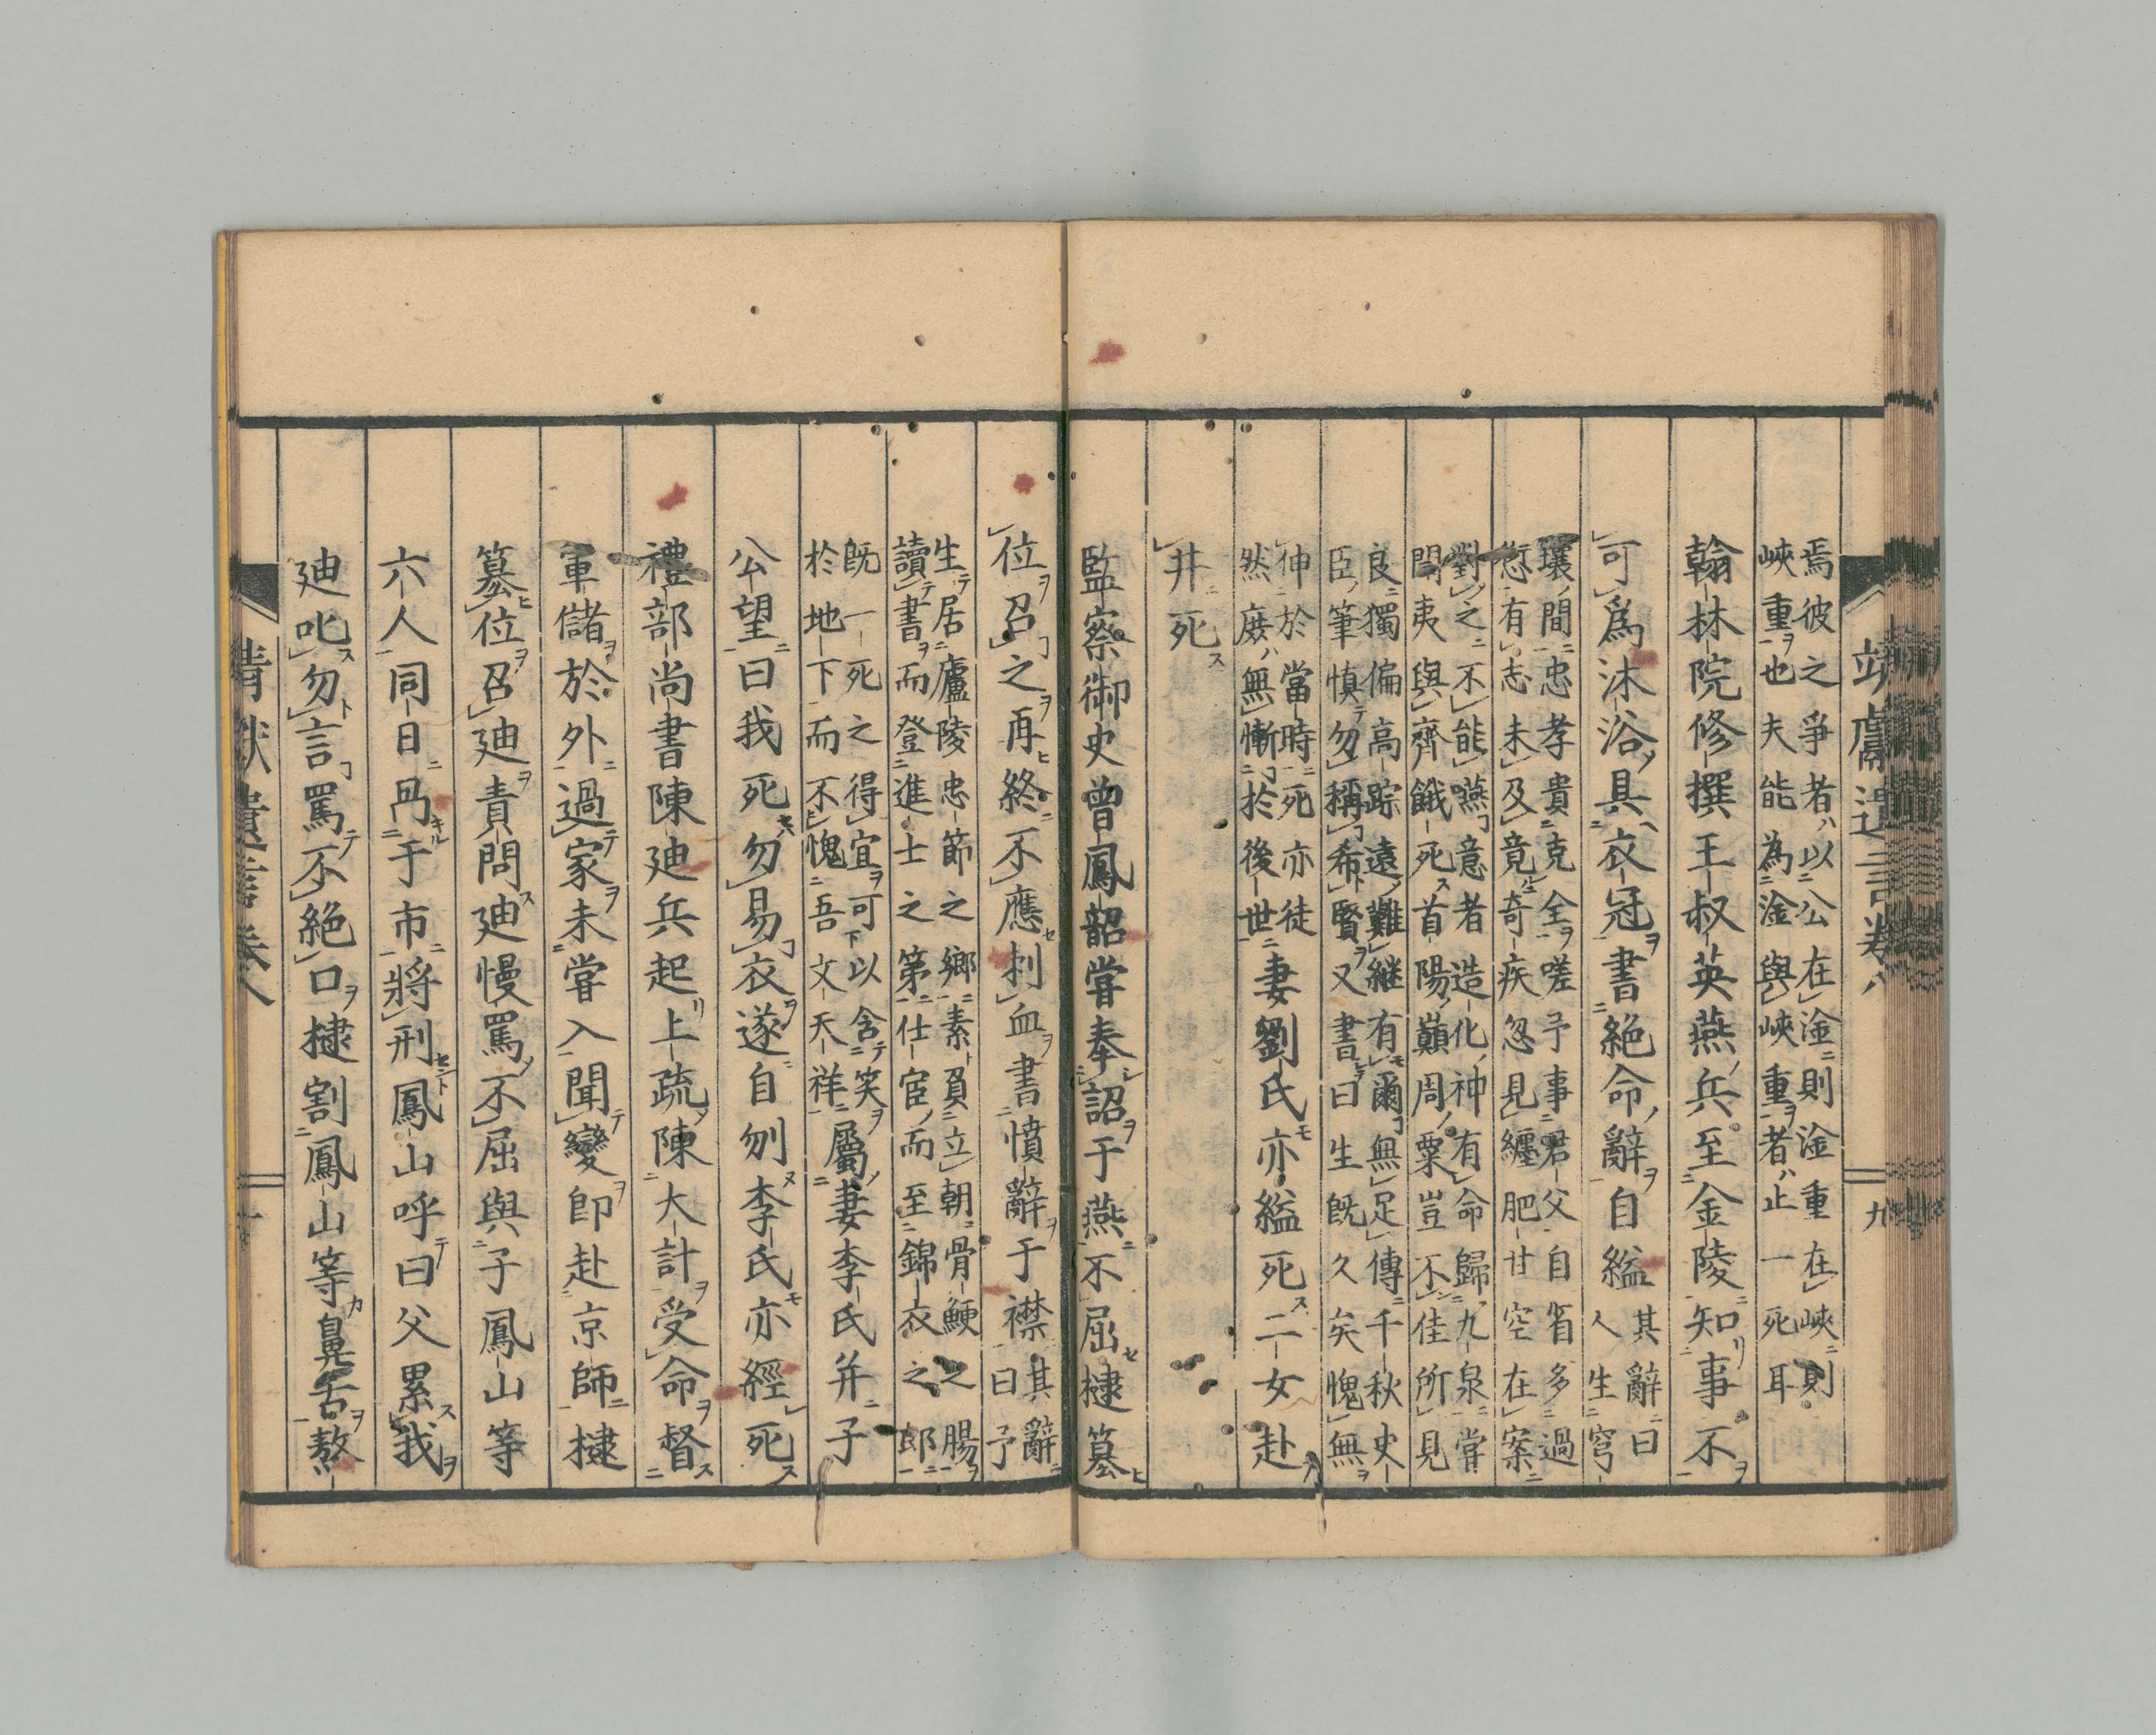 焉彼之爭者以公在淦則淦重在峽則
峽重也夫能為淦與峽重者止一死耳
翰林院修撰王叔英燕兵至金陵知事不
可爲沐浴具衣冠書絕命辭自縊
其辭曰
人生穹
壤間忠孝貴克全嗟予事君父自省多過
愆有志未及竟奇疾忽見纏肥甘空在案
對之不能嚥意者造化神有命歸九泉嘗
聞夷與齊餓死首陽巓周粟豈不佳所見
良獨偏高踪遠難継有爾無足傳千秋史
臣筆慎勿稱希賢又書曰生既久矣愧無
伸於當時死亦徒
然庻無慚於後世
妻劉氏亦縊死二女赴
井死
監察御史曾鳳韶嘗奉詔于燕不屈棣簒
位召之再終不應刺血書憤辭于襟
其辭
曰予
生居廬陵忠節之鄉素負立朝骨鯁之腸
讀書而登進士之第仕宦而至錦衣之郎
既一死之得宜可以含笑
於地下而不愧吾文天祥
屬妻李氏并子
公望曰我死勿易衣遂自刎李氏亦經死
禮部尚書陳廸兵起上疏陳大計受命督
軍儲於外過家未嘗入聞變即赴京師棣
簒位召廸責問廸慢罵不屈與子鳳山等
六人同日冎于市將刑鳳山呼曰父累我
廸叱勿言罵不絕口棣割鳳山等鼻舌熬